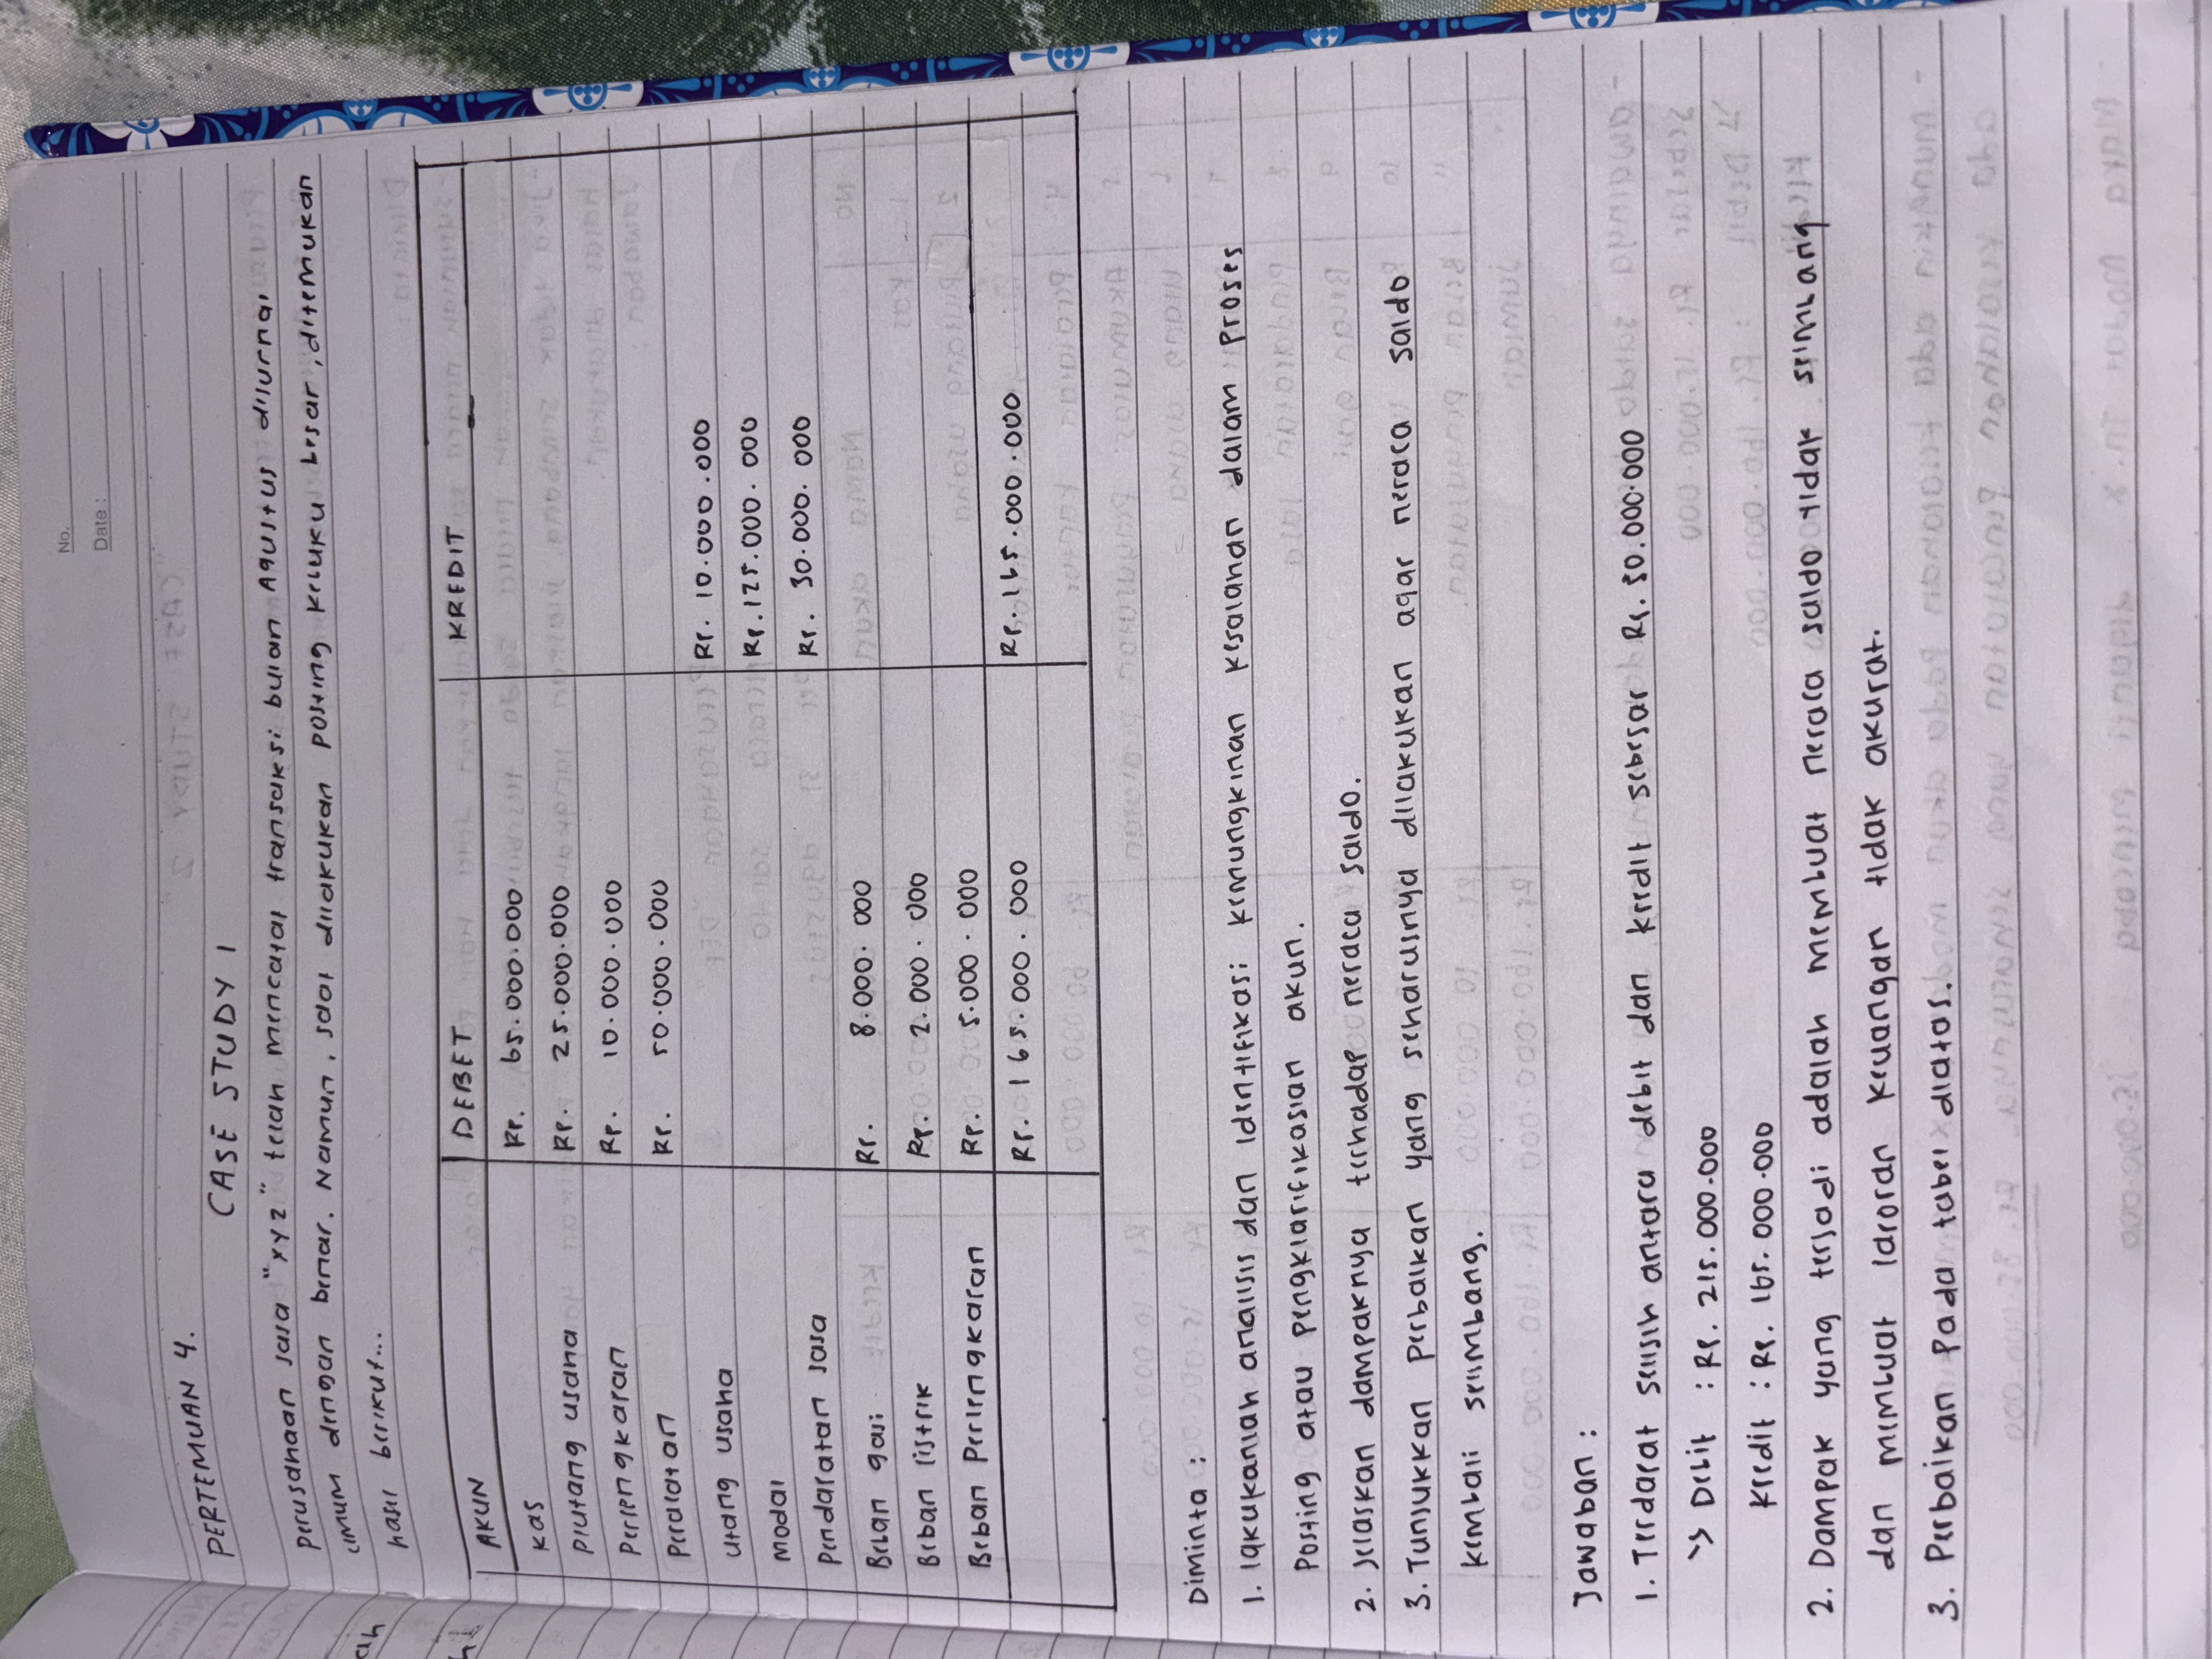 No.
Date :
PERTEMUAN 4.
CASE STUDY 1
Perusahaan jasa "xyz" telah mencatat transaksi bulan Agustus dijurnal
umum dengan benar. Namun, saat dilakukan posting kebuku besar, ditemukan
hasil berikut...
AKUN DEBET KREDIT
Kas Rp. 65.000.000
Piutang usaha Rp. 25.000.000
Perlengkapan Rp. 10.000.000
Peralatan Rp. 50.000.000
Utang usaha Rp. 10.000.000
Modal Rp. 125.000.000
Pendapatan jasa Rp. 30.000.000
Beban gaji Rp. 8.000.000
Beban listrik Rp. 2.000.000
Beban Perlengkapan Rp. 5.000.000
Rp. 165.000.000 Rp. 165.000.000
Diminta :
1. lakukanlah analisis dan identifikasi kemungkinan kesalahan dalam proses
Posting atau pengklarifikasian akun.
2. Jelaskan dampaknya terhadap neraca saldo.
3. Tunjukkan perbaikan yang seharusnya dilakukan agar neraca saldo
kembali seimbang.
Jawaban :
1. Terdapat selisih antara debit dan kredit sebesar Rp. 50.000.000
↳ Debit : Rp. 215.000.000
Kredit : Rp. 165.000.000
2. Dampak yang terjadi adalah membuat neraca saldo tidak seimbang
dan membuat laporan keuangan tidak akurat.
3. Perbaikan Pada tabel diatas.